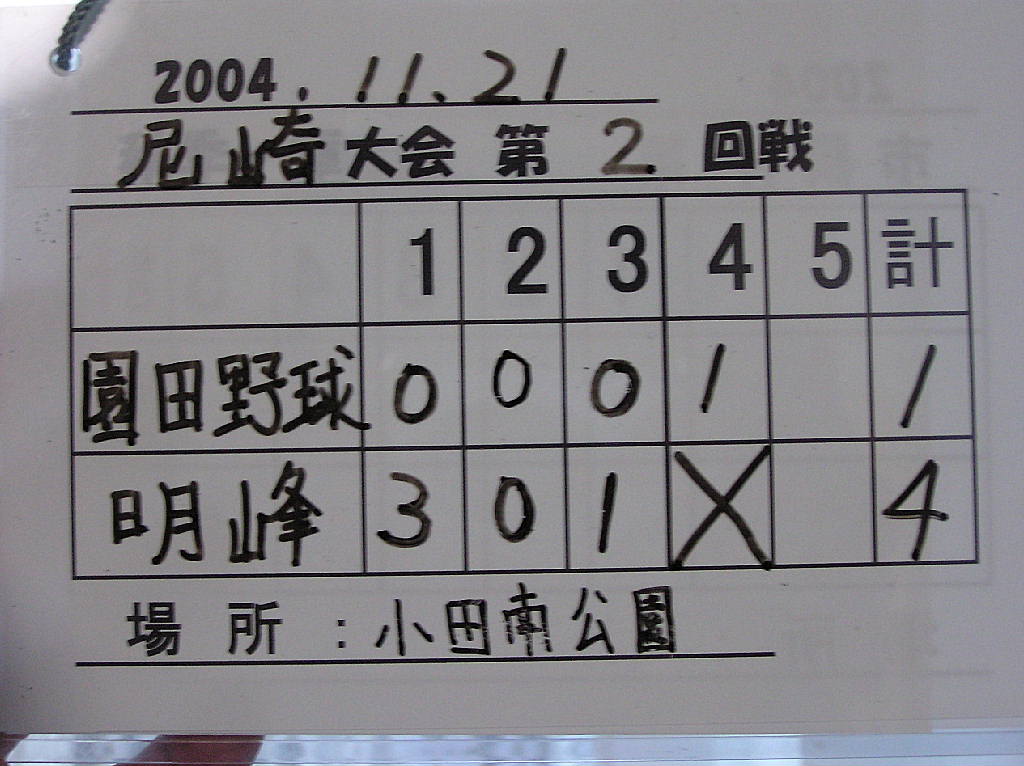 2004.11.21
尼崎大会 第 2 回戦
1 2 3 4 5 計
園田野球 0 0 0 1 1
明峰 3 0 1 X 4
場所：小田南公園